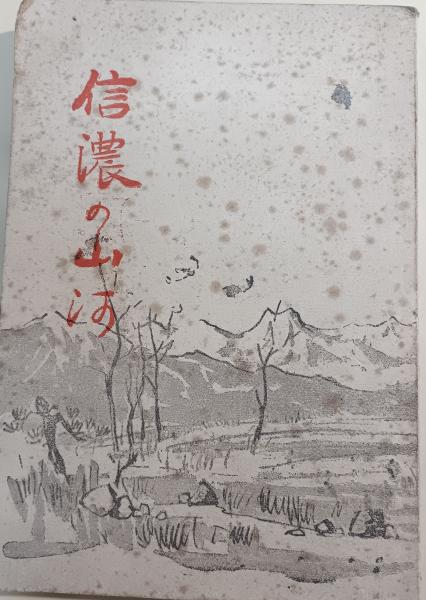 信濃の山河